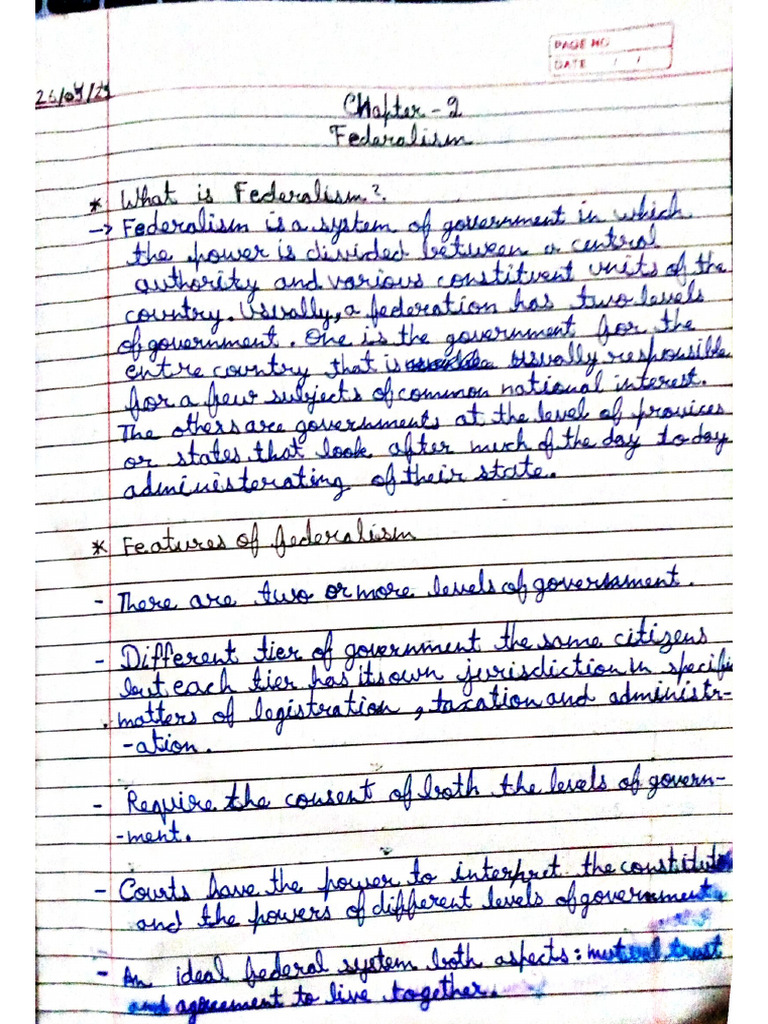 PAGE NO.
DATE / /
Chapter - 2
Federalism
* What is Federalism?.
-> Federalism is a system of government in which
the power is divided between a central
authority and various constituent units of the
country. Usually, a federation has two levels
of government. One is the government for the
entire country that is usually responsible
for a few subjects of common national interest.
The others are governments at the level of provices
or states that look after much of the day to day
administerating of their state.
* Features of federalism
- There are two or more levels of government.
- Different tier of government the same citizens
but each tier has its own jurisdiction in specific
matters of legistration, taxation and administr-
-ation.
- Require the consent of both the levels of govern-
-ment.
- Courts have the power to interpret the
and the powers of different levels of government
- An ideal federal system both aspects: mutual trust
and agreement to live together.